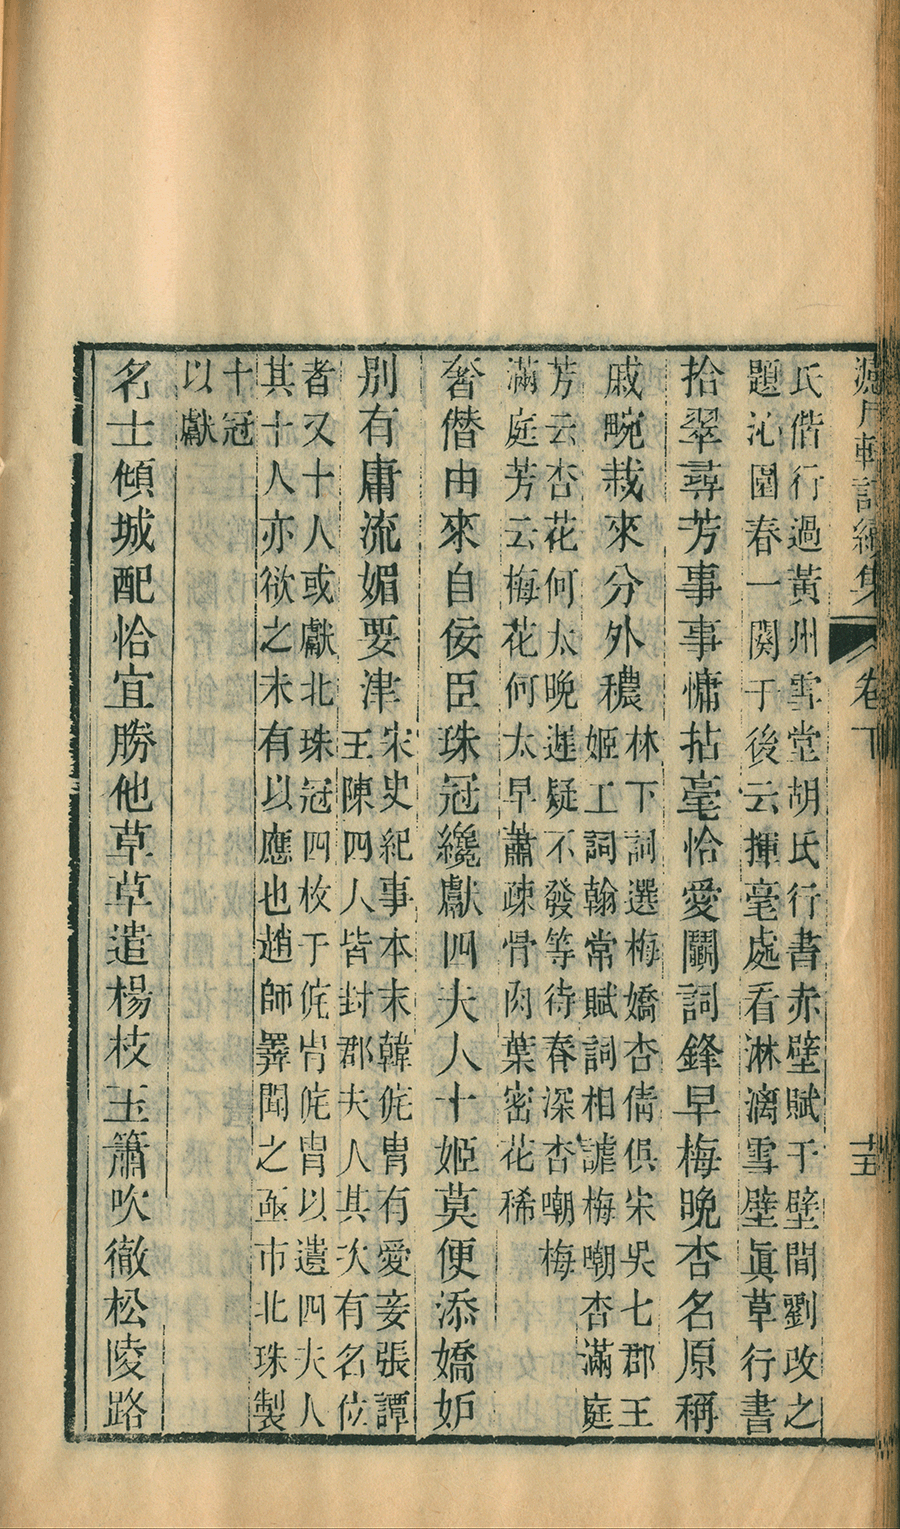 軒詩續集 卷下 十五
氏偕行過黃州雪堂胡氏行書赤壁賦于壁間劉改之
題沁園春一闋于後云揮毫處看淋漓雪壁眞草行書
拾翠尋芳事事慵拈毫恰愛鬭詞鋒早梅晚杏名原稱
戚畹栽來分外穠
林下詞選梅嬌杏倩俱宋吳七郡王
姬工詞翰常賦詞相謔梅嘲杏滿庭
芳云杏花何太晚遲疑不發等待春深杏嘲梅
滿庭芳云梅花何太早蕭疎骨肉葉密花稀
奢僭由來自佞臣珠冠纔獻四夫人十姬莫便添嬌妒
別有庸流媚要津
宋史紀事本末韓侂冑有愛妾張譚
王陳四人皆封郡夫人其次有名位
者又十人或獻北珠冠四枚于侂冑侂冑以遺四夫人
其十人亦欲之未有以應也趙師𢍰聞之亟市北珠製
十冠
以獻
名士傾城配恰宜勝他草草遣楊枝玉簫吹徹松陵路